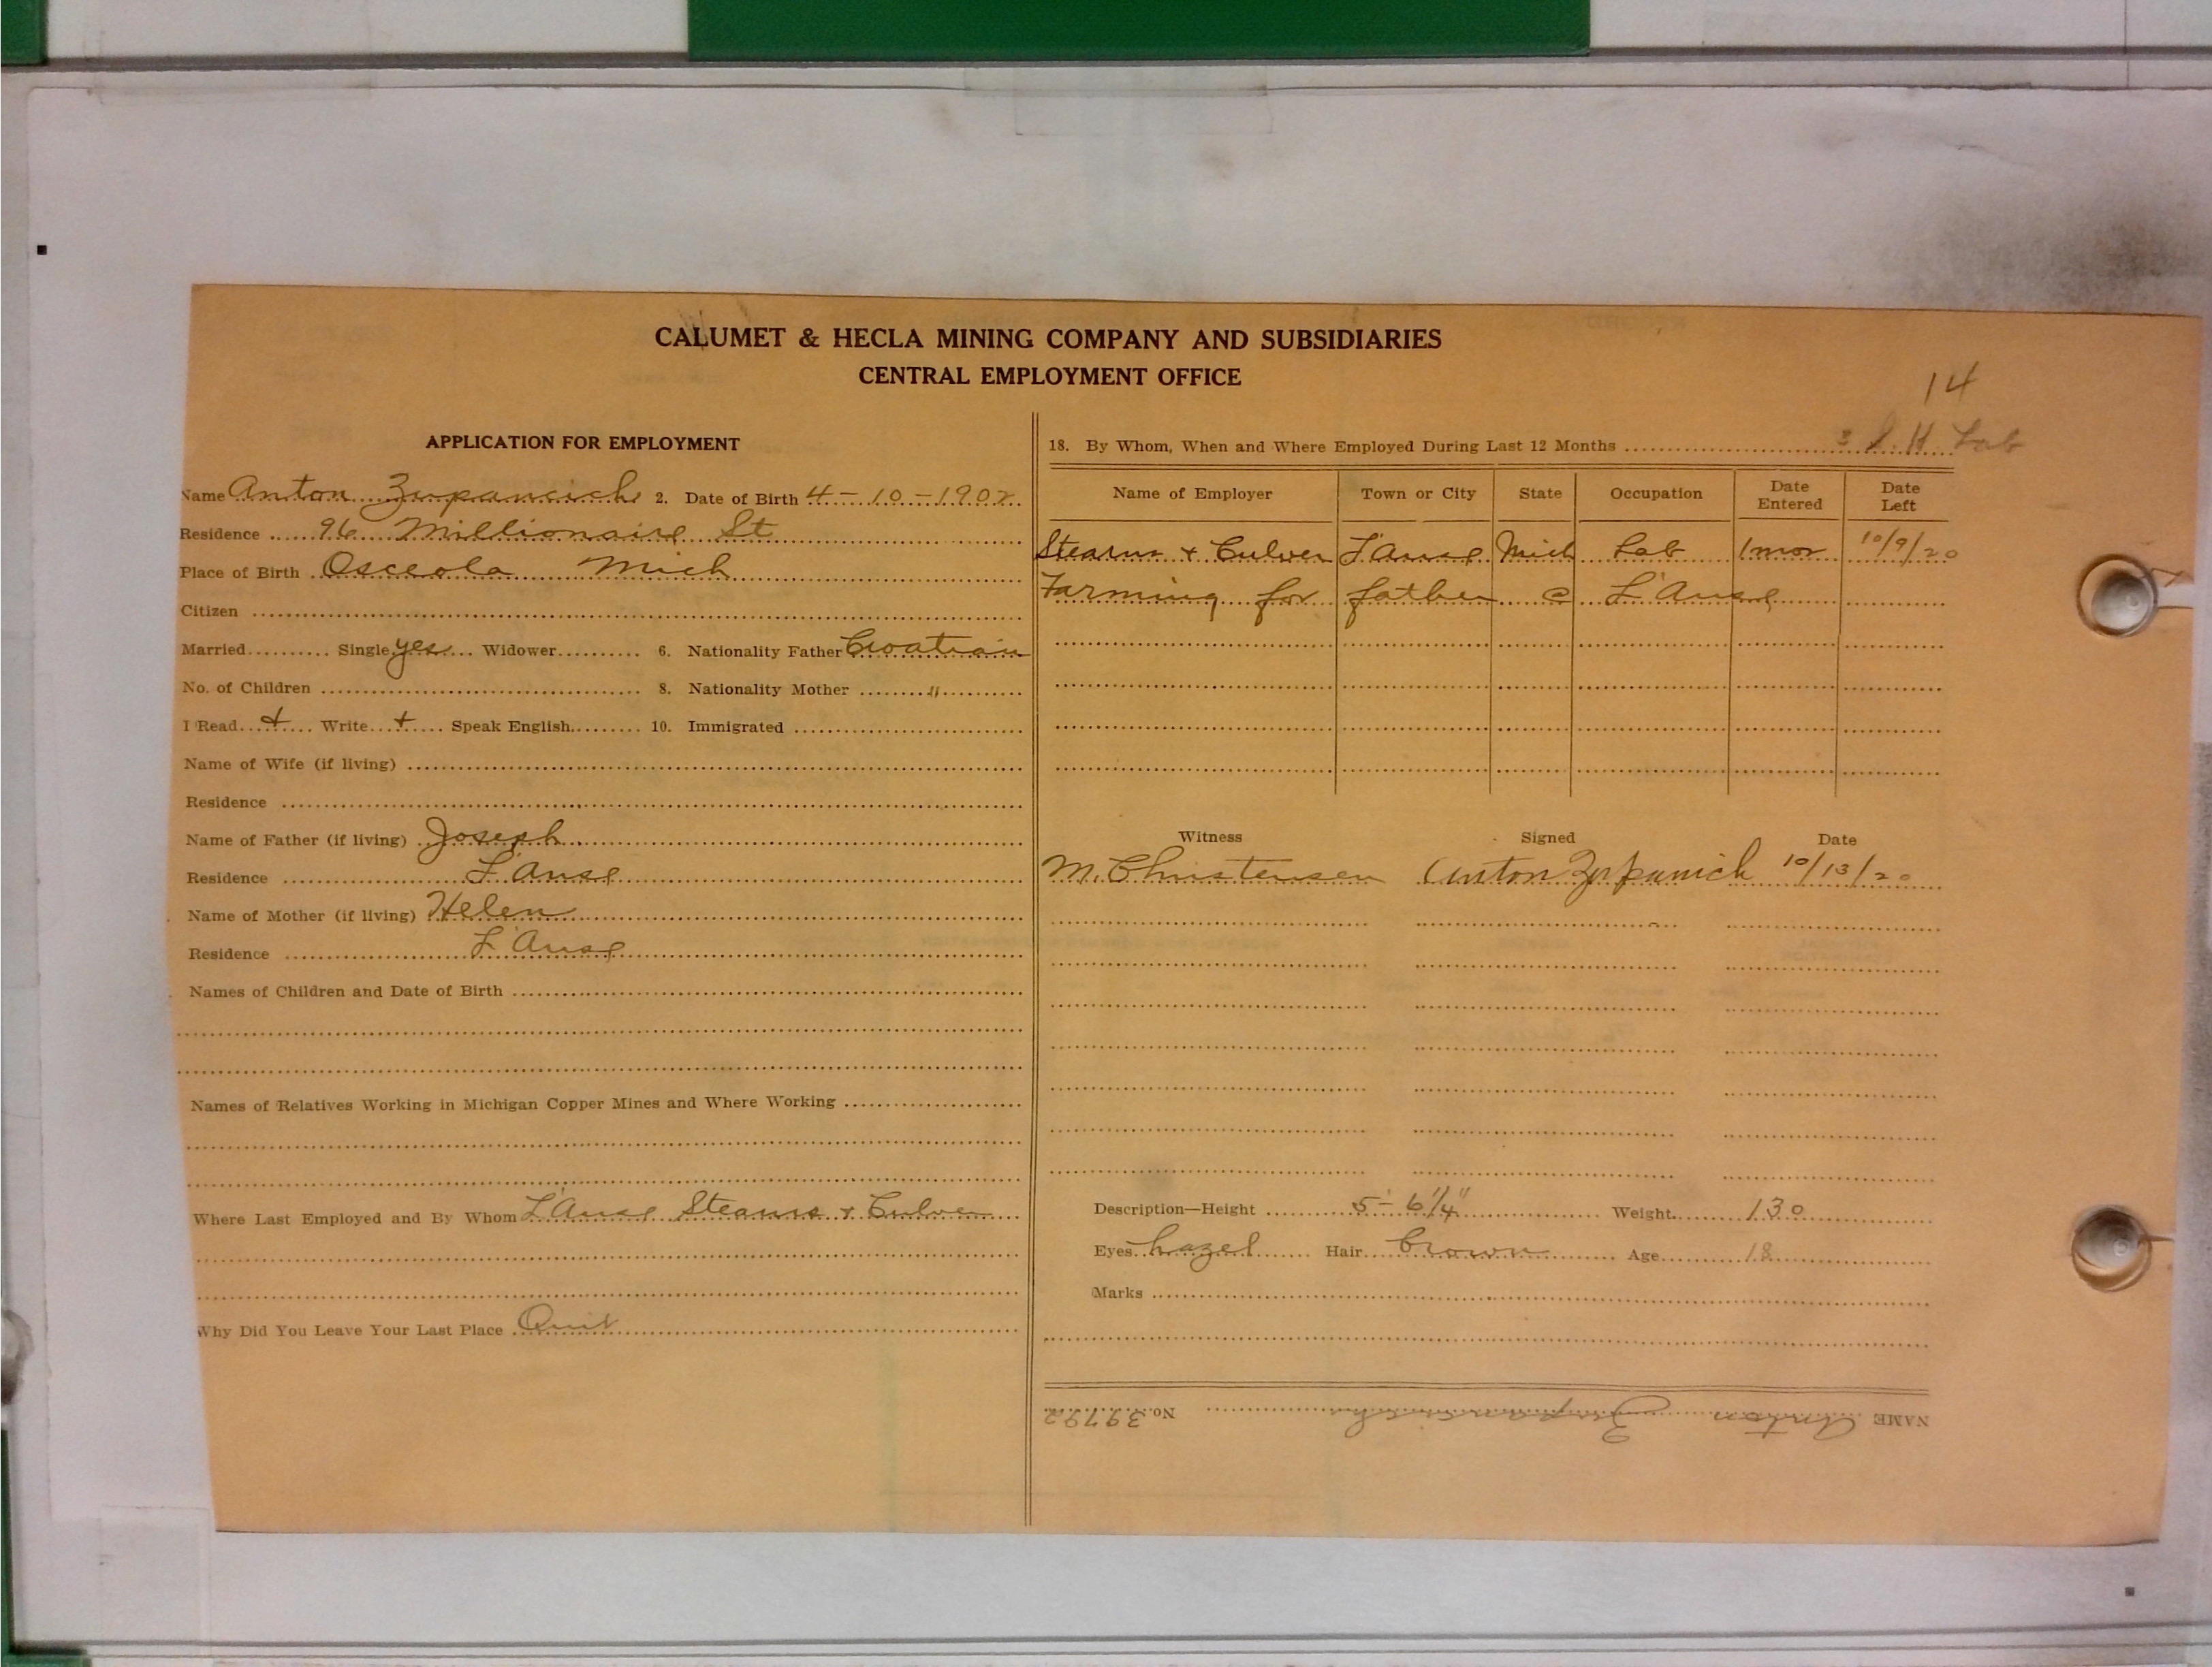 CALUMET & HECLA MINING COMPANY AND SUBSIDIARIES
CENTRAL EMPLOYMENT OFFICE
14
APPLICATION FOR EMPLOYMENT
Name Anton Zupancich 2. Date of Birth 4-10-1902
Residence 96 Millionaire St
Place of Birth Osceola Mich
Citizen
Married Single yes Widower 6. Nationality Father Croatian
No. of Children 8. Nationality Mother "
I Read + Write + Speak English 10. Immigrated
Name of Wife (if living)
Residence
Name of Father (if living) Joseph
Residence L'Anse
Name of Mother (if living) Helen
Residence L'Anse
Names of Children and Date of Birth
Names of Relatives Working in Michigan Copper Mines and Where Working
Where Last Employed and By Whom L'Anse Stearns & Culver
Why Did You Leave Your Last Place Quit
18. By Whom, When and Where Employed During Last 12 Months Lab
Name of Employer Town or City State Occupation Date Entered Date Left
Stearns & Culver L'Anse Mich Lab 1 mos 10/9/20
Farming for father @ L'Anse
Witness Signed Date
M. Christensen Anton Zupanich 10/13/20
Description—Height 5'-6 1/4" Weight 130
Eyes hazel Hair brown Age 18
Marks
NAME Anton Zupancich No. 39792